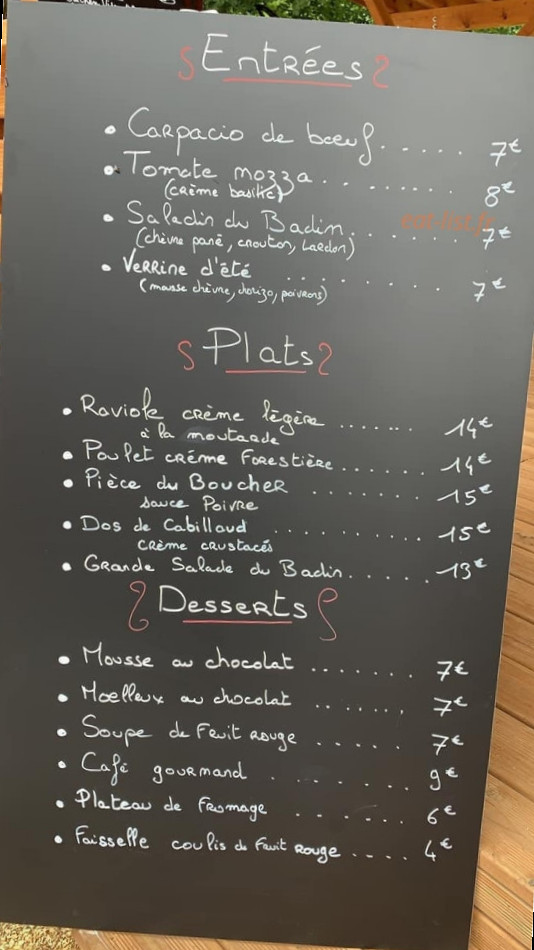 Entrées
• Carpacio de bœuf..... 7€
• Tomate mozza........ 8€
(crème basilic)
• Saladin du Badin....... 7€
(chèvre pané, crouton, Lardon)
• Verrine d'été ........ 7€
(mousse chèvre, chorizo, poivrons)
Plats
• Raviole crème légère ....... 14€
à la moutarde
• Poulet créme Forestière...... 14€
• Pièce du Boucher ....... 15€
sauce Poivre
• Dos de Cabillaud .......... 15€
crème crustacés
• Grande Salade du Badin..... 13€
Desserts
• Mousse au chocolat ....... 7€
• Moelleux au chocolat ...... 7€
• Soupe de Fruit Rouge ..... 7€
• Café gourmand ....... 9€
• Plateau de fromage ...... 6€
• Faisselle coulis de Fruit Rouge .... 4€